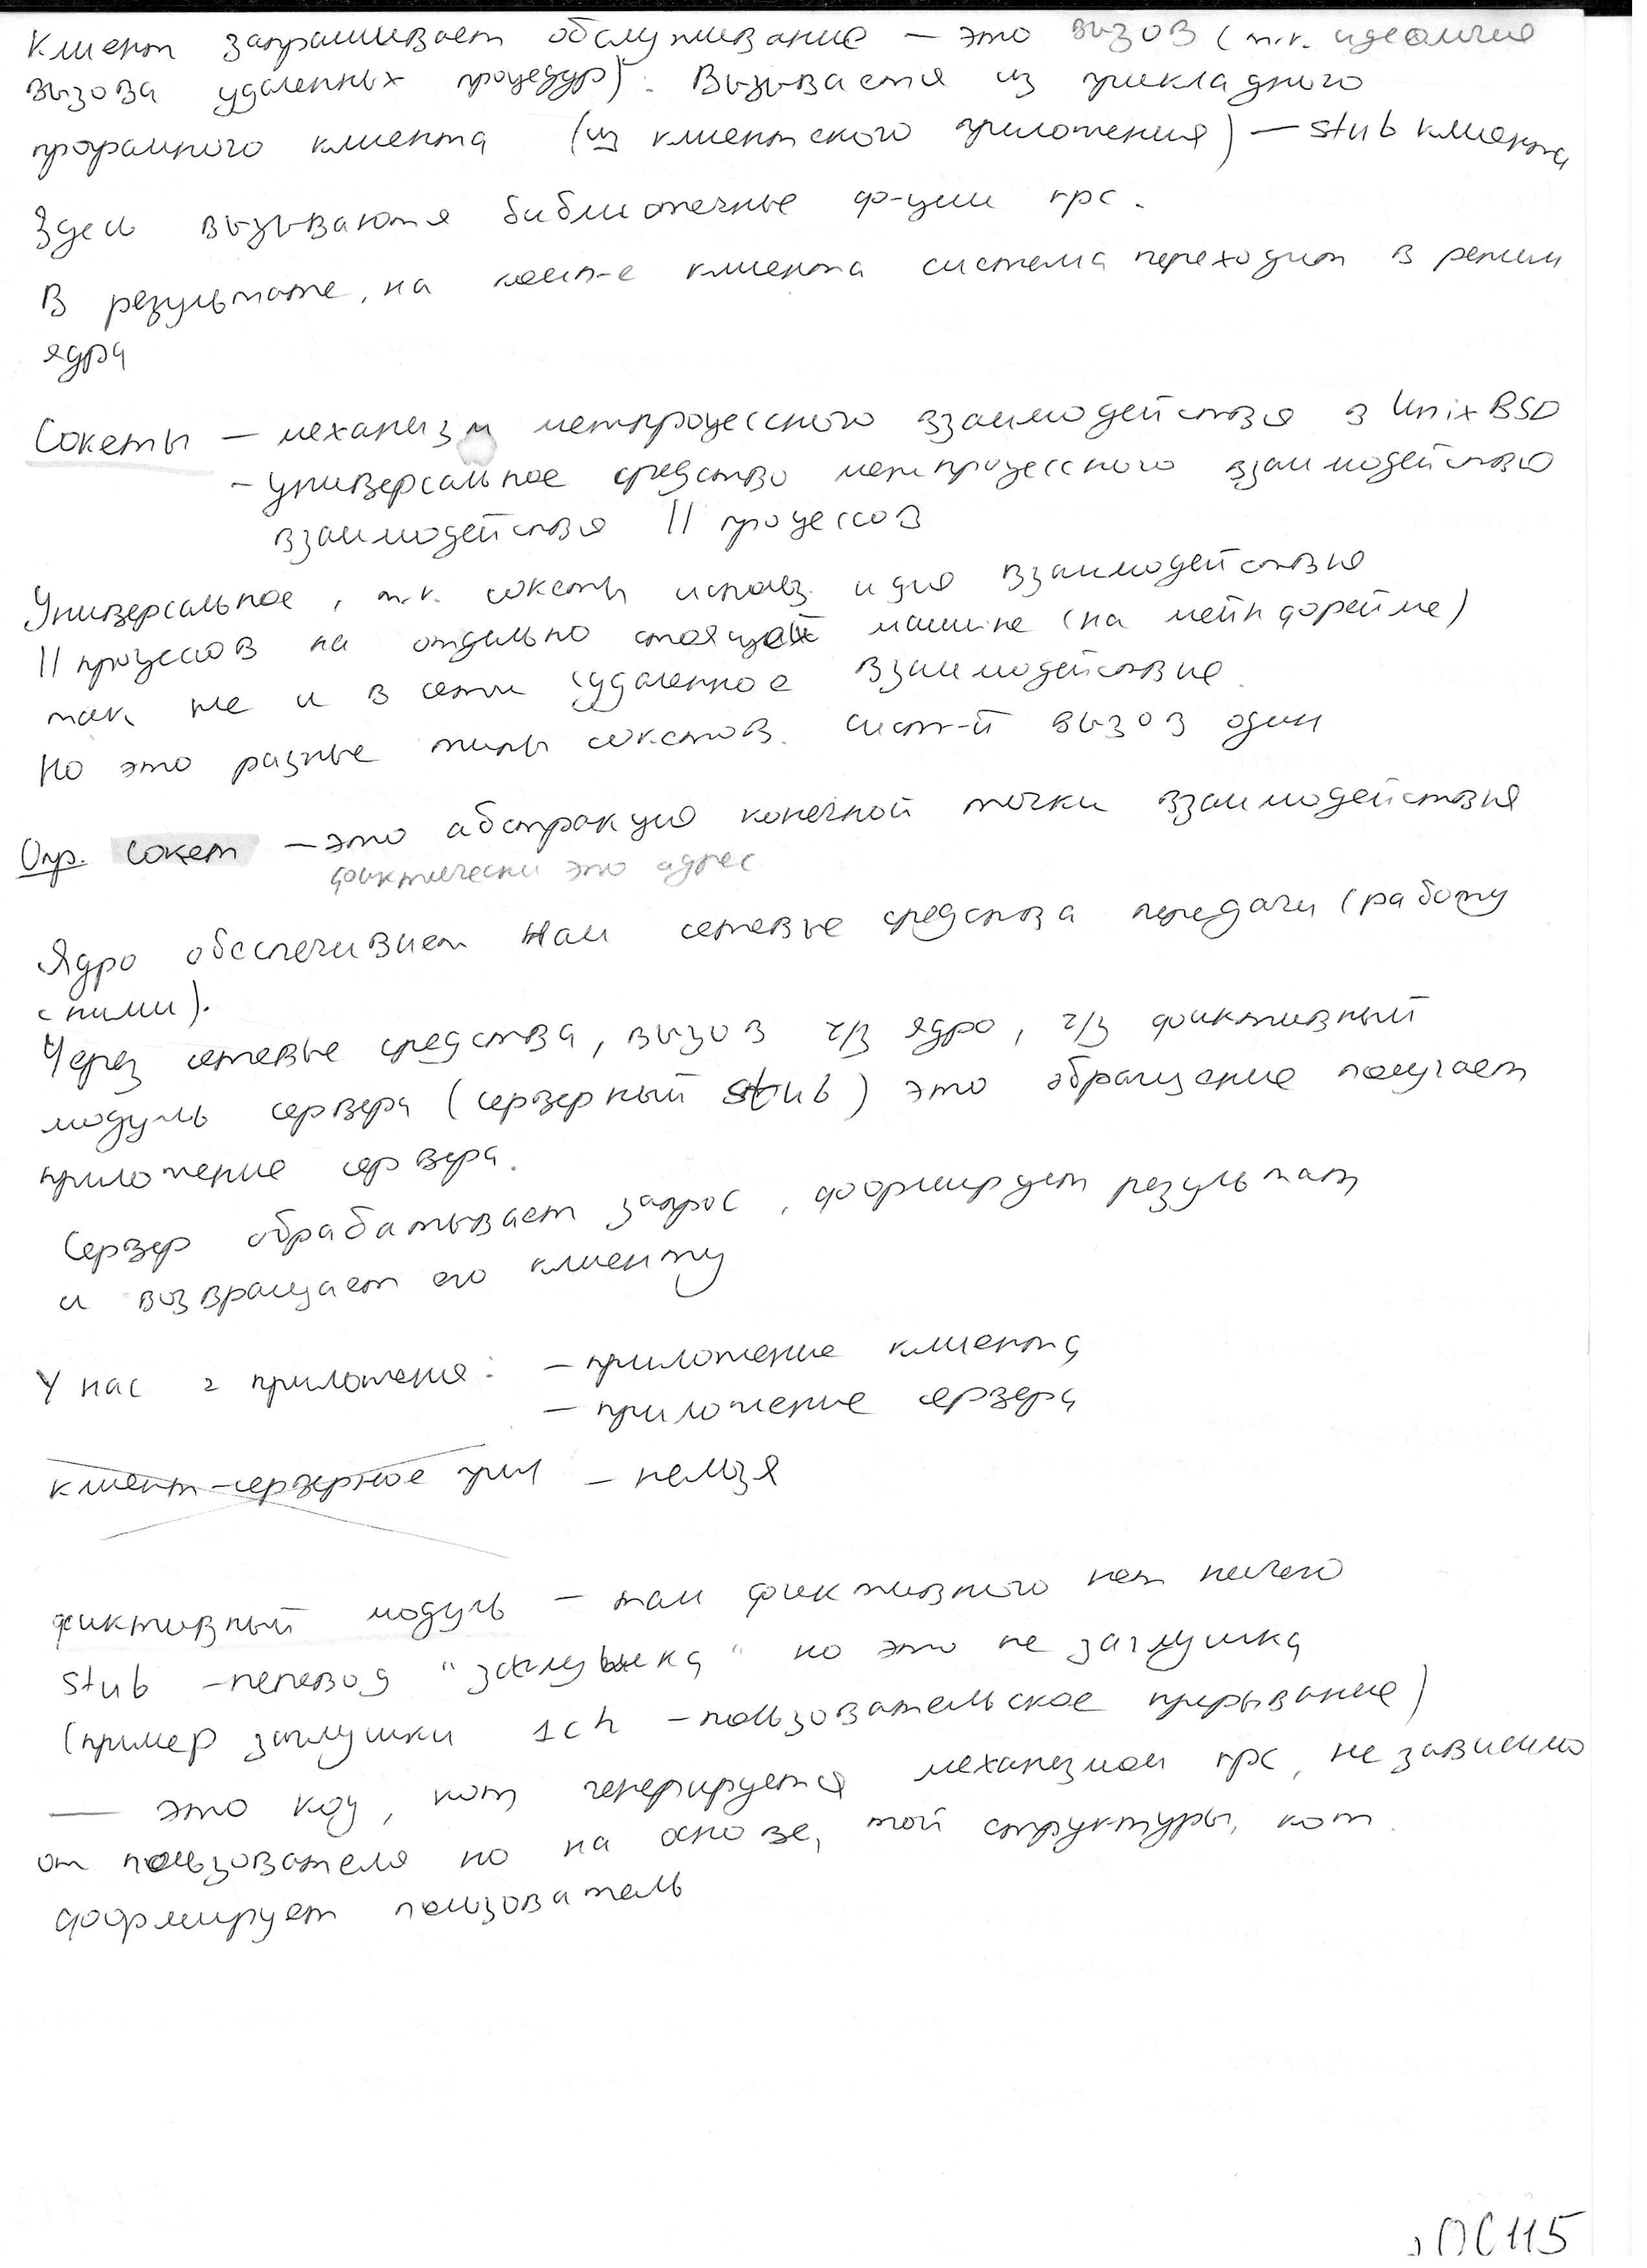 Клиент запрашивает обслуживание – это вызов (т.к. идеология
вызова удаленных процедур). Вызывается из прикладного
програмного клиента (из клиентского приложения) – stub клиента
Здесь вызываются библиотечные ф-ции rpc.
В результате, на комп-е клиента система переходит в режим
ядра
Сокеты – механизм межпроцессного взаимодействия в Unix BSD
– универсальное средство межпроцессного взаимодействию
взаимодействия || процессов
Универсальное, т.к. сокеты использ. и для взаимодействия
|| процессов на отдельно стоящей машине (на мейнфрейме)
так же и в сети (удаленное взаимодействие.
Но это разные типы сокетов. сист-й вызов один
Опр. Сокет – это абстракция конечной точки взаимодействия
фактически это адрес
Ядро обеспечивает нам сетевые средства передачи (работу
с ними).
Через сетевые средства, вызов ч/з ядро, ч/з фиктивный
модуль сервера (серверный stub) это обращение получает
приложение сервера.
Сервер обрабатывает запрос, формирует результат
и возвращает его клиенту
У нас 2 приложения: – приложение клиента
– приложение сервера
клиент-серверное прил – нельзя
фиктивный модуль – там фиктивного нет ничего
stub – перевод "заглушка" но это не заглушка
(пример заглушки 1ch – пользовательское прерывание)
— это код, кот генерируется механизмом rpc, не зависимо
от пользователя но на основе, той структуры, кот.
формирует пользователь
ОС 115